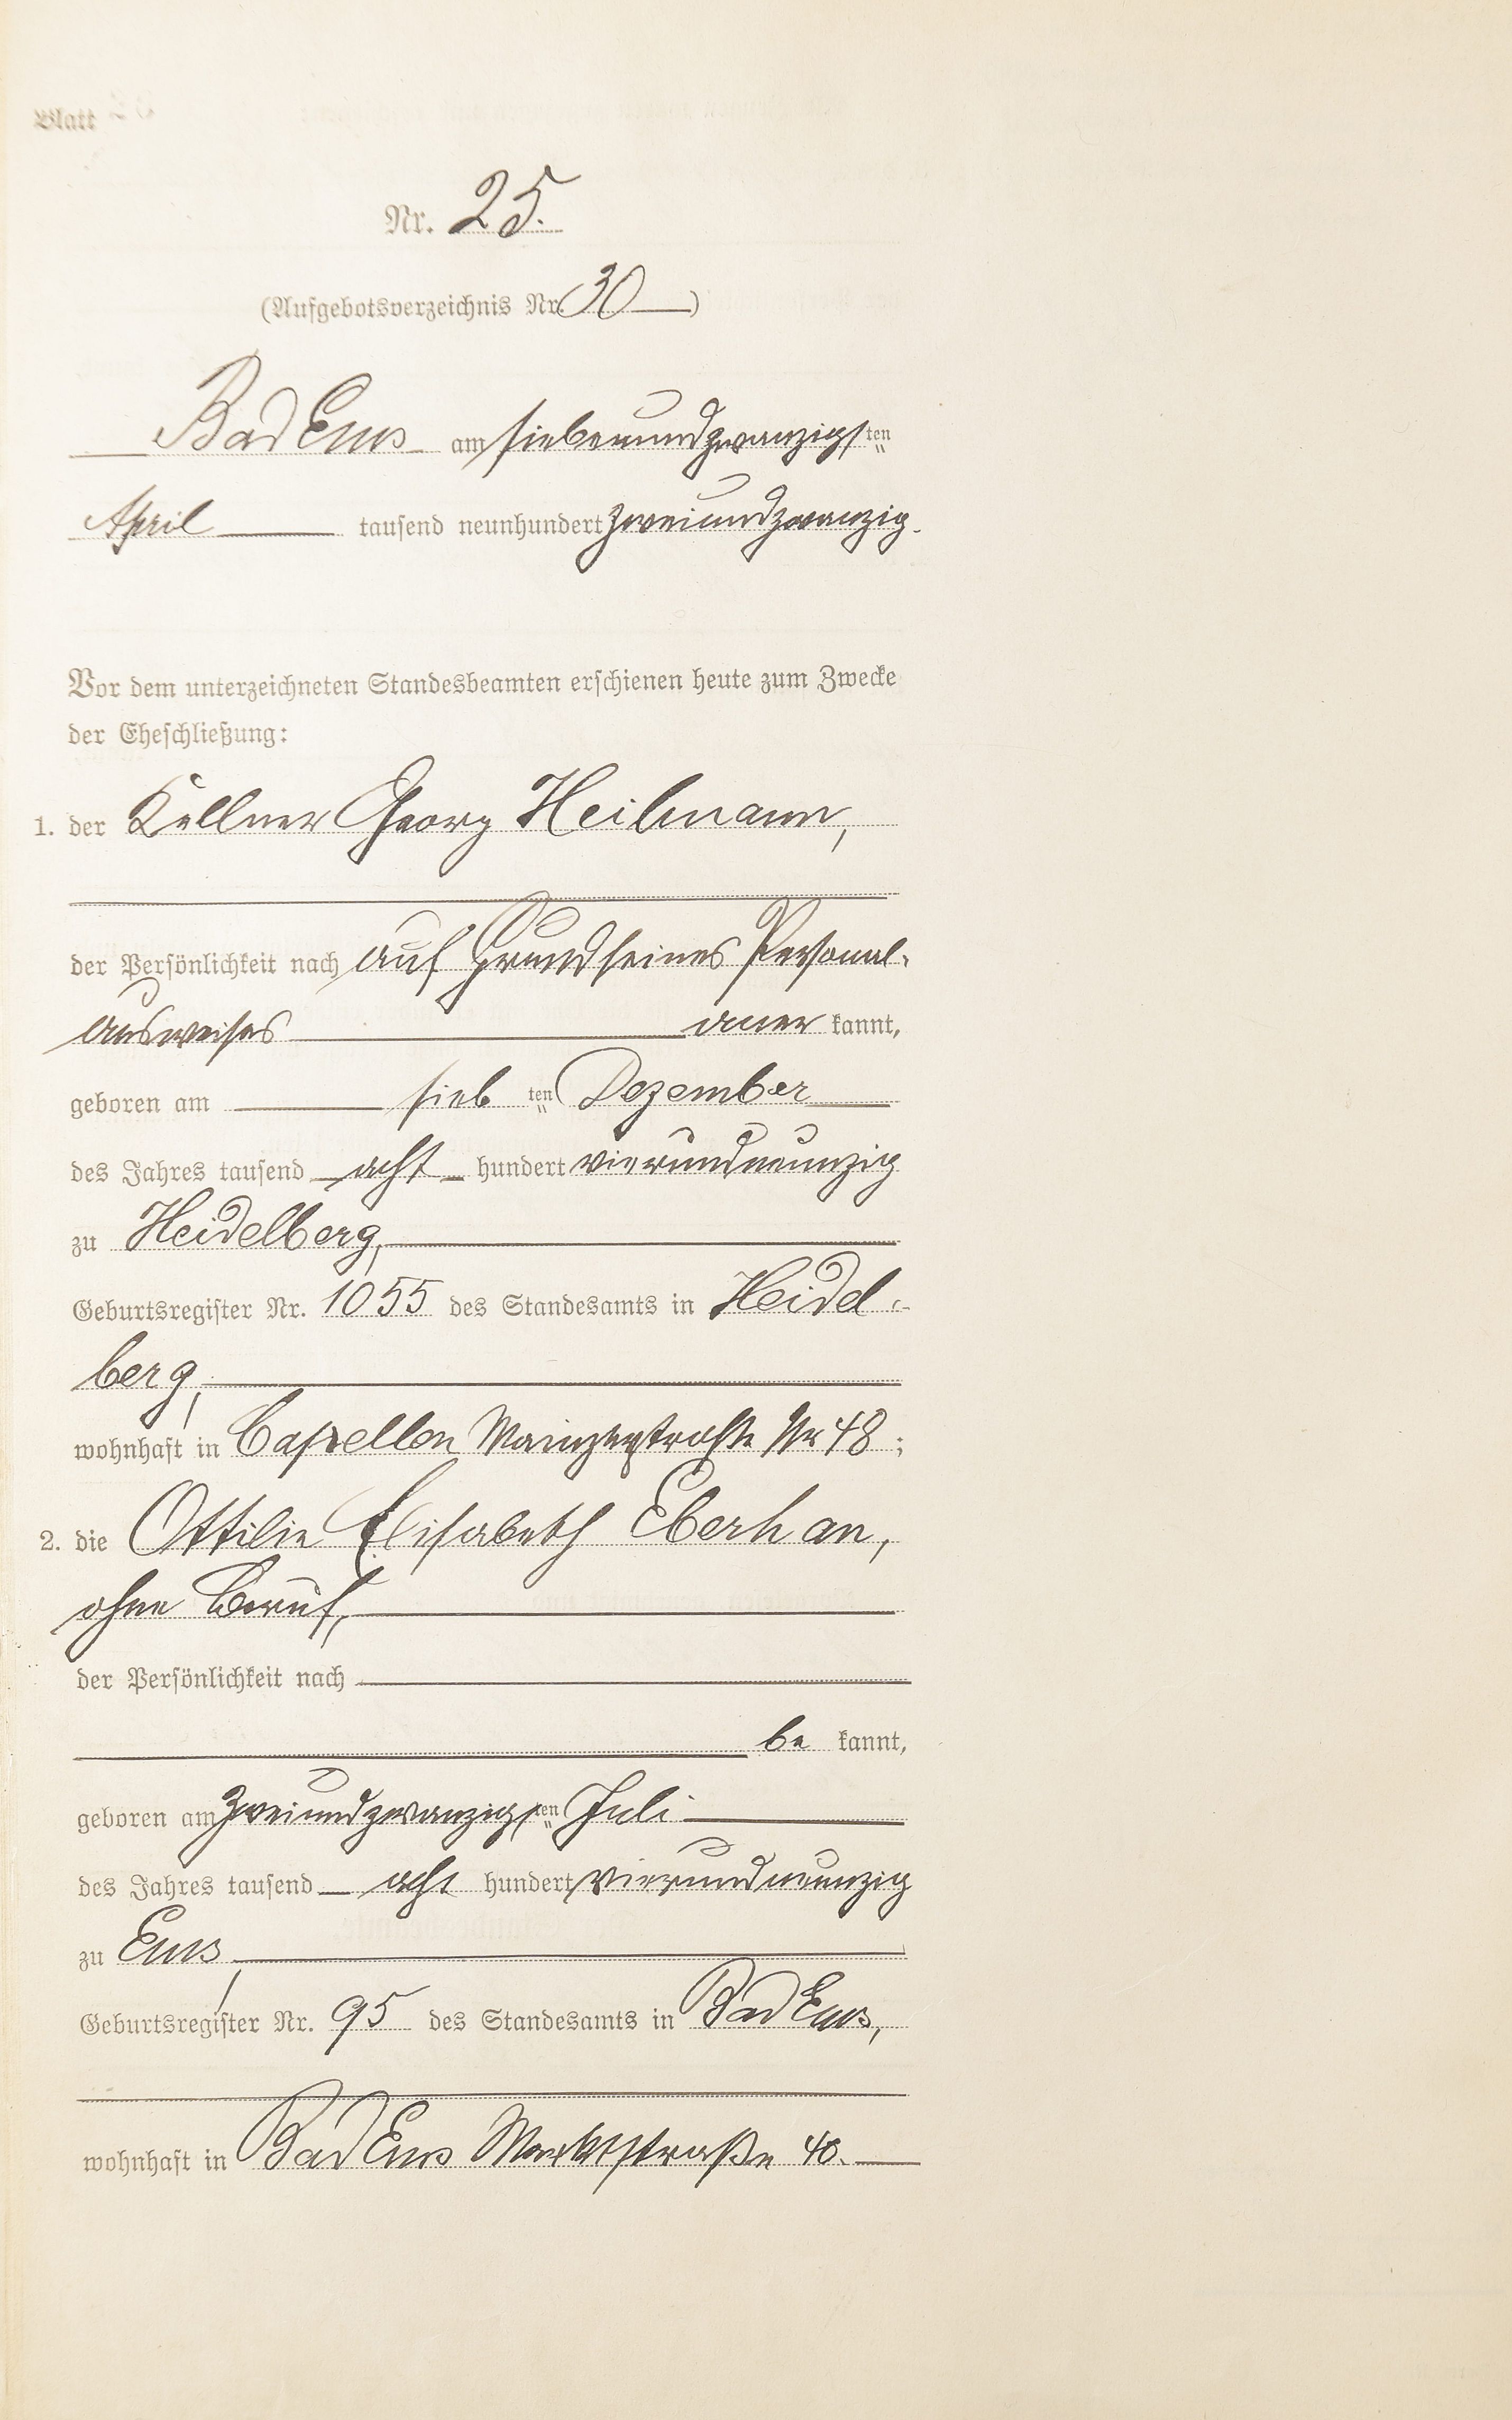 Blatt
Nr. 25.
(Aufgebotsverzeichnis Nr. 30)
Bad Ems am siebenundzwanzigsten
April tausend neunhundert zweiundzwanzig.
Vor dem unterzeichneten Standesbeamten erschienen heute zum Zwecke
der Eheschließung:
1. der Kellner Georg Heilmann,
der Persönlichkeit nach auf Grund seines Personal-
ausweises anerkannt,
geboren am siebten Dezember
des Jahres tausend acht hundert vierundneunzig
zu Heidelberg,
Geburtsregister Nr. 1055 des Standesamts in Heidel-
berg,
wohnhaft in Capellen Mainzerstraße Nr 48;
2. die Ottilie Elisabeth Eberhan,
ohne Beruf,
der Persönlichkeit nach
bekannt,
geboren am zweiundzwanzigsten Juli
des Jahres tausend acht hundert vierundneunzig
zu Ems,
Geburtsregister Nr. 95 des Standesamts in Bad Ems,
wohnhaft in Bad Ems Marktstraße 40.